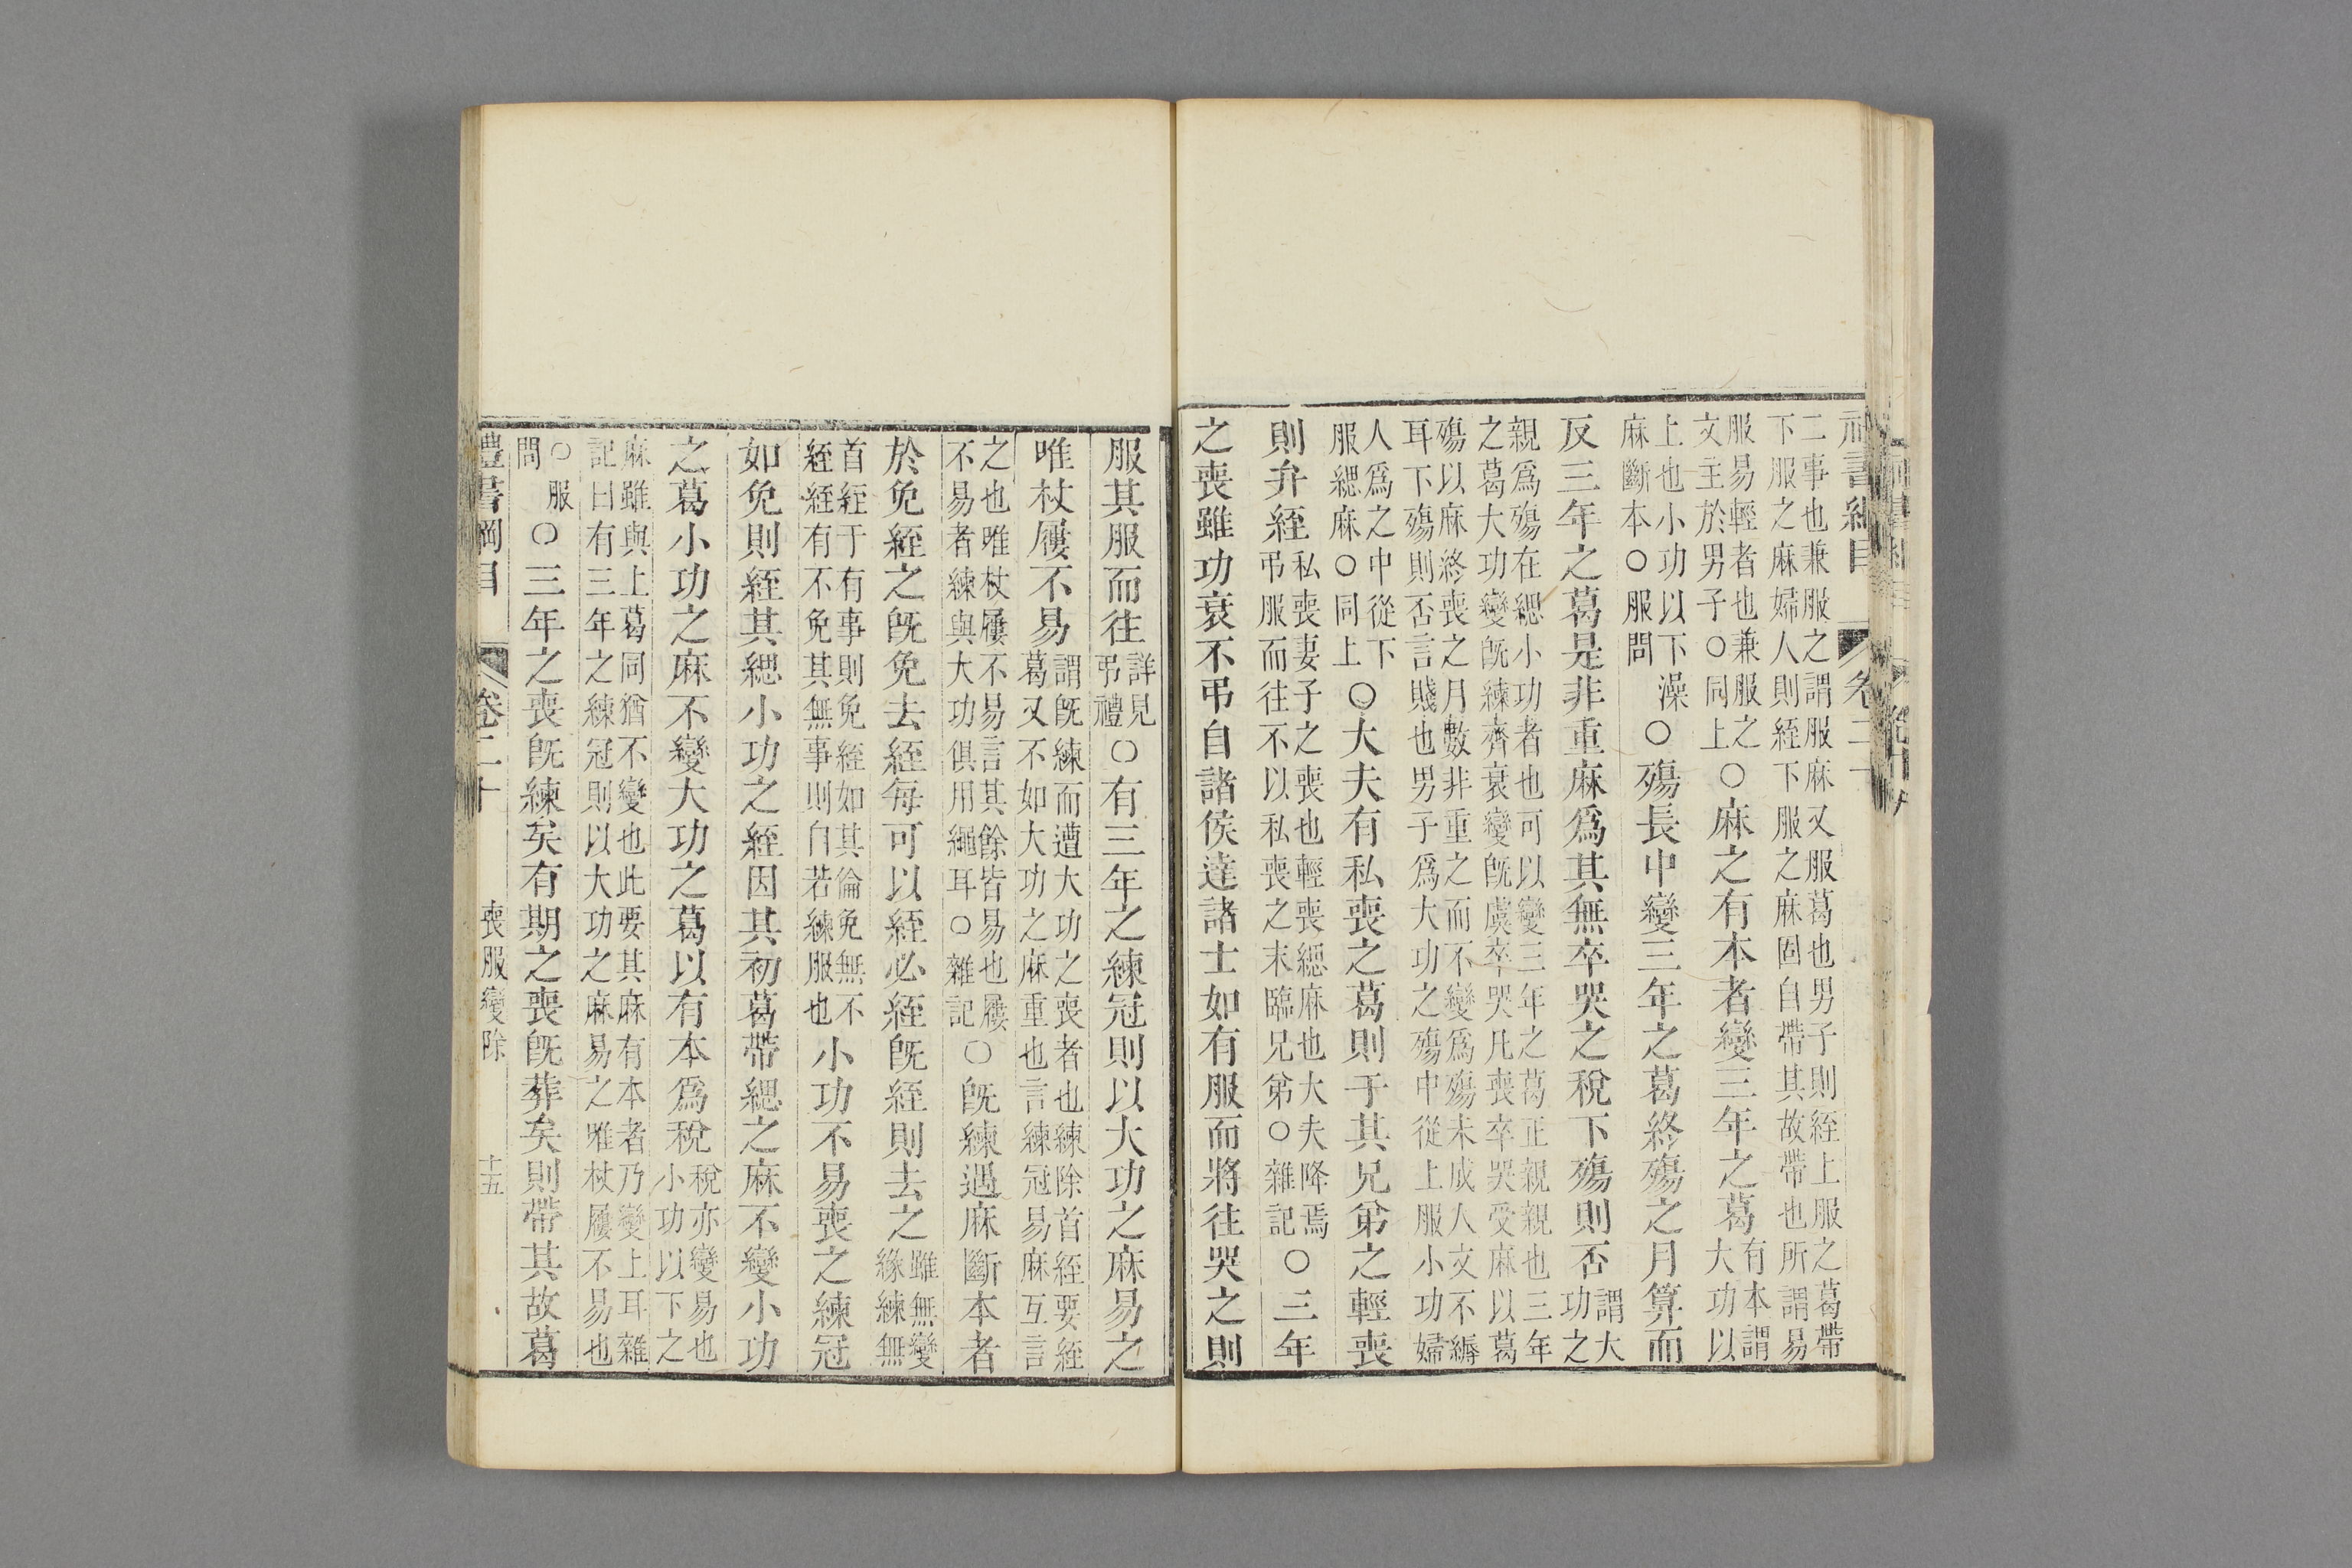 書綱目 卷二十
二事也兼服之謂服麻又服葛也男子則絰上服之葛帶
下服之麻婦人則絰下服之麻固自帶其故帶也所謂易
服易輕者也兼服之
文主於男子○同上
○麻之有本者變三年之葛
有本謂
大功以
上也小功以下澡
麻斷本○服問
○殤長中變三年之葛終殤之月算而
反三年之葛是非重麻爲其無卒哭之稅下殤則否
謂大
功之
親爲殤在緦小功者也可以變三年之葛正親親也三年
之葛大功變既練齊衰變既虞卒哭凡喪卒哭受麻以葛
殤以麻終喪之月數非重之而不變爲殤未成人文不縟
耳下殤則否言賤也男子爲大功之殤中從上服小功婦
人爲之中從下
服緦麻○同上
○大夫有私喪之葛則于其兄弟之輕喪
則弁絰
私喪妻子之喪也輕喪緦麻也大夫降焉
弔服而往不以私喪之末臨兄弟○雜記
○三年
之喪雖功衰不弔自諸侯達諸士如有服而將往哭之則
服其服而往
詳見
弔禮
○有三年之練冠則以大功之麻易之
唯杖屨不易
謂既練而遭大功之喪者也練除首絰要絰
葛又不如大功之麻重也言練冠易麻互言
之也唯杖屨不易言其餘皆易也屨
不易者練與大功俱用繩耳○雜記
○既練遇麻斷本者
於免絰之既免去絰每可以絰必絰既絰則去之
雖無變
緣練無
首絰于有事則免絰如其倫免無不
絰絰有不免其無事則自若練服也
小功不易喪之練冠
如免則絰其緦小功之絰因其初葛帶緦之麻不變小功
之葛小功之麻不變大功之葛以有本爲稅
稅亦變易也
小功以下之
麻雖與上葛同猶不變也此要其麻有本者乃變上耳雜
記曰有三年之練冠則以大功之麻易之唯杖屨不易也
○服
問
○三年之喪既練矣有期之喪既葬矣則帶其故葛
禮書綱目 卷二十 喪服變除 十五